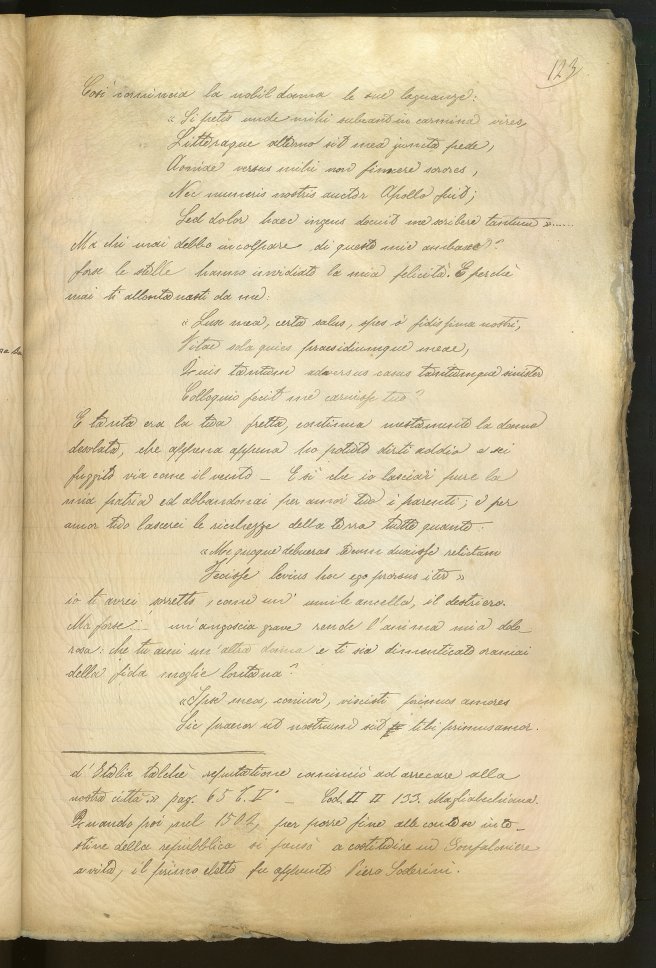 123
Così comincia la nobil donna le sue lagnanze:
"Si petis unde mihi subeant in carmina vires,
Litteraque alterno sit mea juncta pede,
Aonidae versus mihi non finxere sorores,
Nec numeris nostris auctor Apollo fuit;
Sed dolor haec ingens docuit me scribere tantum"......
Ma chi mai debbo incolpare di queste mie ambasce?
forse le stelle hanno invidiato la mia felicità. E perchè
mai ti allontanasti da me:
"Lux mea, certa salus, spes o' fidissima nostri,
Vitae sola quies praesidiumque meae,
Quis tantum adversus casus tantumque sinister
Colloquio fecit me caruisse tuo?
E tanta era la tua fretta, continua mestamente la donna
desolata, che appena appena ho potuto dirti addio e sei
fuggito via come il vento – E sì che io lasciai pure la
mia patria ed abbandonai per amor tuo i parenti; e per
amor tuo lascerei le ricchezze della terra tutte quante:
"Me quoque debueras tecum duxisse relictam
Fecisse levius hoc ego prorsus iter"
io ti avrei sorretto, come un' umile ancella, il destriero.
Ma forse?.. un'angoscia grave rende l'anima mia dolo-
rosa: che tu ami un'altra donna e ti sia dimenticato oramai
della fida moglie lontana?
"Ipse meos, coniux, vicisti primus amores
Sic precor ut nostrum sit tibi primus amor.
d'Italia talchè reputatione cominciò ad arrecare alla
nostra città" pag. 65 t. Vo – Cod. II II 133. Magliabechiana.
Quando poi nel 1502, per porre fine alle contese inte-
stine della repubblica si pensò a costituire un Gonfaloniere
a vita, il primo eletto fu appunto Piero Soderini.